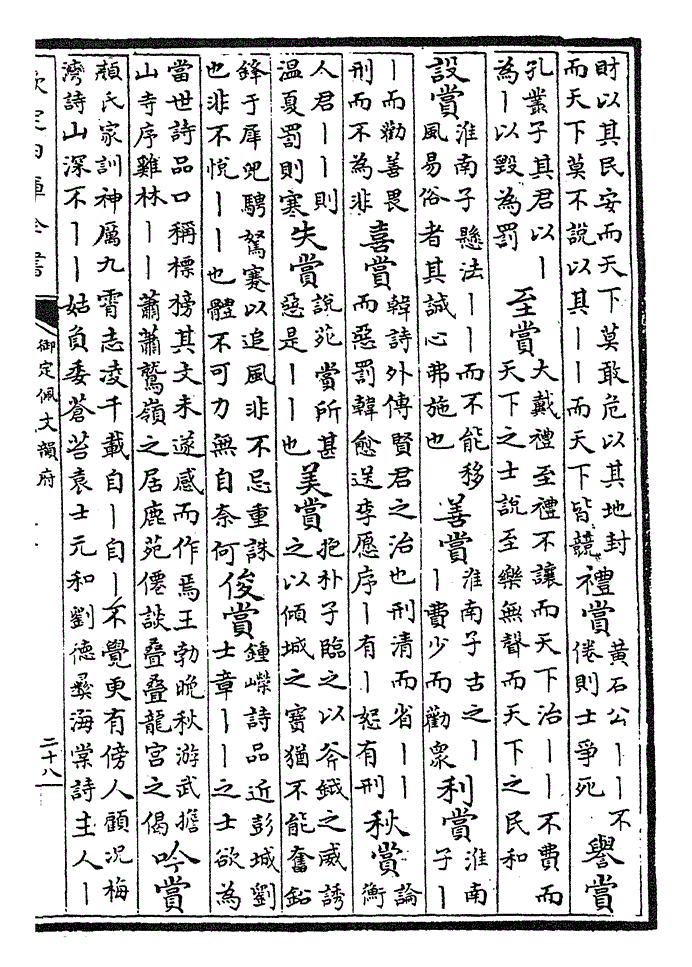 財以其民安而天下莫敢危以其地封
而天下莫不說以其丨丨而天下皆競
禮賞
黃石公丨丨不
倦則士爭死
譽賞
孔叢子其君以丨
為丨以毀為罰
至賞
大戴禮至禮不讓而天下治丨丨不費而
天下之士說至樂無聲而天下之民和
設賞
淮南子懸法丨丨而不能移
風易俗者其誠心弗施也
善賞
淮南子古之丨
丨費少而勸衆
利賞
淮南
子丨
丨而勸善畏
刑而不為非
喜賞
韓詩外傳賢君之治也刑清而省丨丨
而惡罰韓愈送李愿序丨有丨怒有刑
秋賞
論
衡
人君丨丨則
溫夏罰則寒
失賞
說苑賞所甚
惡是丨丨也
美賞
抱朴子臨之以斧鉞之威誘
之以傾城之寶猶不能奮鉛
鋒于犀兕騁駑蹇以追風非不忌重誅
也非不悅丨丨也體不可力無自奈何
俊賞
鍾嶸詩品近彭城劉
士章丨丨之士欲為
當世詩品口稱標榜其文未遂感而作焉王勃晚秋游武擔
山寺序雞林丨丨蕭蕭鷲嶺之居鹿苑僊談疊疊龍宮之偈
吟賞
顏氏家訓神厲九霄志凌千載自丨自丨不覺更有傍人顧况梅
灣詩山深不丨丨姑負委蒼苔袁士元和劉德彝海棠詩主人丨
欽定四庫全書
御定佩文韻府
二十八